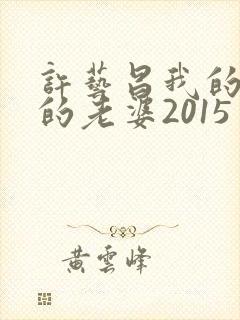 許藝昌我的
的老婆2015
黃雲峰